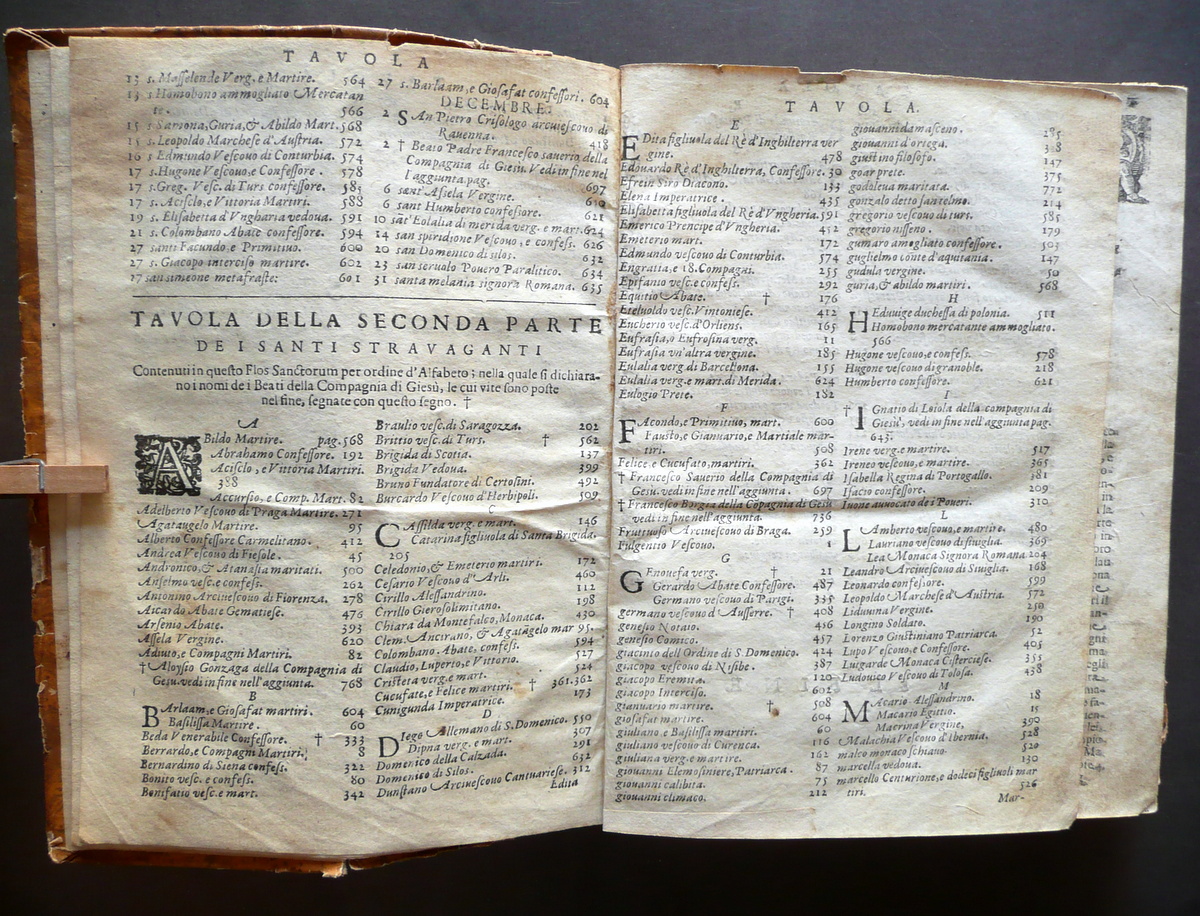 TAVOLA
13 s. Masselende Verg. e Martire. 564
13 s. Homobono ammogliato Mercatan
te. 566
15 s Samona, Guria, & Abildo Mart. 568
15 s. Leopoldo Marchese d'Austria. 572
16 s Edmundo Vescouo di Conturbia. 574
17 s. Hugone Vescouo, e Confessore. 578
17 s. Greg. Vesc. di Turs confessore. 585
17 s. Acisclo, e Vittoria Martiri. 588
19 s. Elisabetta d'Vngharia vedoua. 591
21 s. Colombano Abate confessore. 594
27 santi Facundo, e Primitiuo. 600
27 s. Giacopo interciso martire. 602
27 san simeone metafraste. 601
27 s. Barlaam, e Giosafat confessori. 604
DECEMBRE.
2 SAn Pietro Crisologo arcuiescouo di
Rauenna. 418
2 † Beato Padre Francesco sauerio della
Compagnia di Giesù. Vedi in fine nel
l'aggiunta. pag. 697
6 sant' Asela Vergine. 610
6 sant Humberto confessore. 621
10 sāt' Eolalia di merida verg. e mart. 624
14 san spiridione Vescouo, e confess. 626
20 san Domenico di silos. 632
23 san seruolo Pouero Paralitico. 634
31 santa melania signora Romana. 635
TAVOLA DELLA SECONDA PARTE
DE I SANTI STRAVAGANTI
Contenuti in questo Flos Sanctorum per ordine d'Alfabeto; nella quale si dichiara-
no i nomi de i Beati della Compagnia di Giesù, le cui vite sono poste
nel fine, segnate con questo segno. †
A
ABildo Martire. pag. 568
Abrahamo Confessore. 192
Acisclo, e Vittoria Martiri.
388
Accursio, e Comp. Mart. 82
Adelberto Vescouo di Praga Martire. 271
Agataugelo Martire. 95
Alberto Confessore Carmelitano. 412
Andrea Vescouo di Fiesole. 45
Andronico, & Atanasia maritati. 500
Anselmo vesc. e confess. 262
Antonino Arciuescouo di Fiorenza. 278
Aicardo Abate Gematiese. 476
Arsenio Abate. 393
Assela Vergine. 620
Adiuto, e Compagni Martiri. 82
† Aloysio Gonzaga della Compagnia di
Giesu. vedi in fine nell'aggiunta. 768
B
BArlaam, e Giosafat martiri. 604
Basilissa Martire. 60
Beda Venerabile Confessore. † 333
Berrardo, e Compagni Martiri. 8
Bernardino di Siena confess. 322
Bonito vesc. e confess. 80
Bonifatio vesc. e mart. 342
Braulio vesc. di Saragozza. 202
Brittio vesc. di Turs. † 562
Brigida di Scotia. 137
Brigida Vedoua. 399
Bruno Fundatore di Certosini. 492
Burcardo Vescouo d'Herbipoli. 509
C
CAssilda verg. e mart. 146
Catarina figliuola di Santa Brigida.
205
Celedonio, & Emeterio martiri. 172
Cesario Vescouo d'Arli. 460
Cirillo Alessandrino. 112
Cirillo Gierosolimitano. 198
Chiara da Montefalco, Monaca. 430
Clem. Ancirano, & Agatāgelo mar 95.
Colombano. Abate. confess. 594
Claudio, Luperto, e Vittorio. 527
Cristeta verg. e mart. 524
Cucufate, e Felice martiri. † 361. 362
Cunigunda Imperatrice. 173
D
DIego Allemano di S. Domenico. 550
Dipna verg. e mart. 307
Domenico della Calzada. 291
Domenico di Silos. 632
Dunstano Arciuescouo Cantuariese. 312
Edita
TAVOLA.
E
EDita figliuola del Rè d'Inghilterra ver
gine. 478
Edouardo Rè d'Inghilterra, Confessore. 30
Efrein Siro Diacono. 133
Elena Imperatrice. 435
Elisabetta figliuola del Rè d'Vngheria. 591
Emerico Prencipe d'Vngheria. 452
Emeterio mart. 172
Edmundo vescouo di Conturbia. 574
Engratia, e 18. Compagni. 255
Epifanio vesc. e confess. 292
Equitio Abate. † 176
Eteluoldo vesc. Vintoniese. 412
Eucherio vesc. d'Orliens. 165
Eufrasia, o Eufrosina verg. 11
Eufrasia vn'altra vergine. 185
Eulalia verg. di Barcellona. 155
Eulalia verg. e mart. di Merida. 624
Eulogio Prete. 182
F
FAcondo, e Primitiuo, mart. 600
Fausto, e Gianuario, e Martiale mar-
tiri. 508
Felice, e Cucufato, martiri. 362
† Francesco Sauerio della Compagnia di
Giesu. vedi in fine nell'aggiunta. 697
† Francesco Borgia della Cōpagnia di Giesu
vedi in fine nell'aggiunta. 736
Fruttuoso Arciuescouo di Braga. 259
Fulgentio Vescouo. 1
G
GEnouefa verg. † 21
Gerardo Abate Confessore. 487
Germano vescouo di Parigi. 335
germano vescouo d'Ausserre. † 408
genesio Notaio. 456
genesio Comico. 457
giacinto dell'Ordine di S. Domenico. 424
giacopo vescouo di Nisibe. 387
giacopo Eremita. 120
giacopo Interciso. 602
gianuario martire. † 508
giosafat martire. 604
giuliano, e Basilissa martiri. 60
giuliano vescouo di Cuenca. 116
giuliana verg. e martire. 162
giouanni Elemosiniere, Patriarca. 87
giouanni calibita. 75
giouanni climaco. 212
giouanni damasceno. 285
giouanni d'ortega. 318
giustino filosofo. 147
goar prete. 375
godoleua maritata. 772
gonzalo detto santelmo. 214
gregorio vescouo di turs. 585
gregorio nisseno. 179
gumaro amogliato confessore. 503
guglielmo conte d'aquitania. 147
gudula vergine. 50
guria, & abildo martiri. 568
H
HEduuige duchessa di polonia. 511
Homobono mercatante ammogliato.
566
Hugone vescouo, e confess. 578
Hugone vescouo di granoble. 218
Humberto confessore. 621
I
† IGnatio di Loiola della compagnia di
Giesù, vedi in fine nell'aggiunta pag.
643.
Irene verg. e martire. 517
Ireneo vescouo, e martire. 365
Isabella Regina di Portogallo. 381
Isacio confessore. 209
Iuone auuocato de i Poueri. 310
L
LAmberto vescouo, e martire. 480
Lauriano vescouo di siuiglia. 369
Lea Monaca Signora Romana 204
Leandro Arciuescouo di Siuiglia. 168
Leonardo confessore. 599
Leopoldo Marchese d'Austria. 572
Liduuina Vergine. 250
Longino Soldato. 190
Lorenzo Giustiniano Patriarca. 52
Lupo Vescouo, e Confessore. 405
Luigarde Monaca Cisterciese. 353
Ludouico Vescouo di Tolosa. 438
M
MAcario Alessandrino. 18
Macario Egittio. 15
Maerina Vergine. 390
Malachia Vescouo d'Ibernia. 528
malco monaco schiauo. 520
marcella vedoua. 130
marcello Centurione, e dodeci figliuoli mar
tiri. 526
Mar-